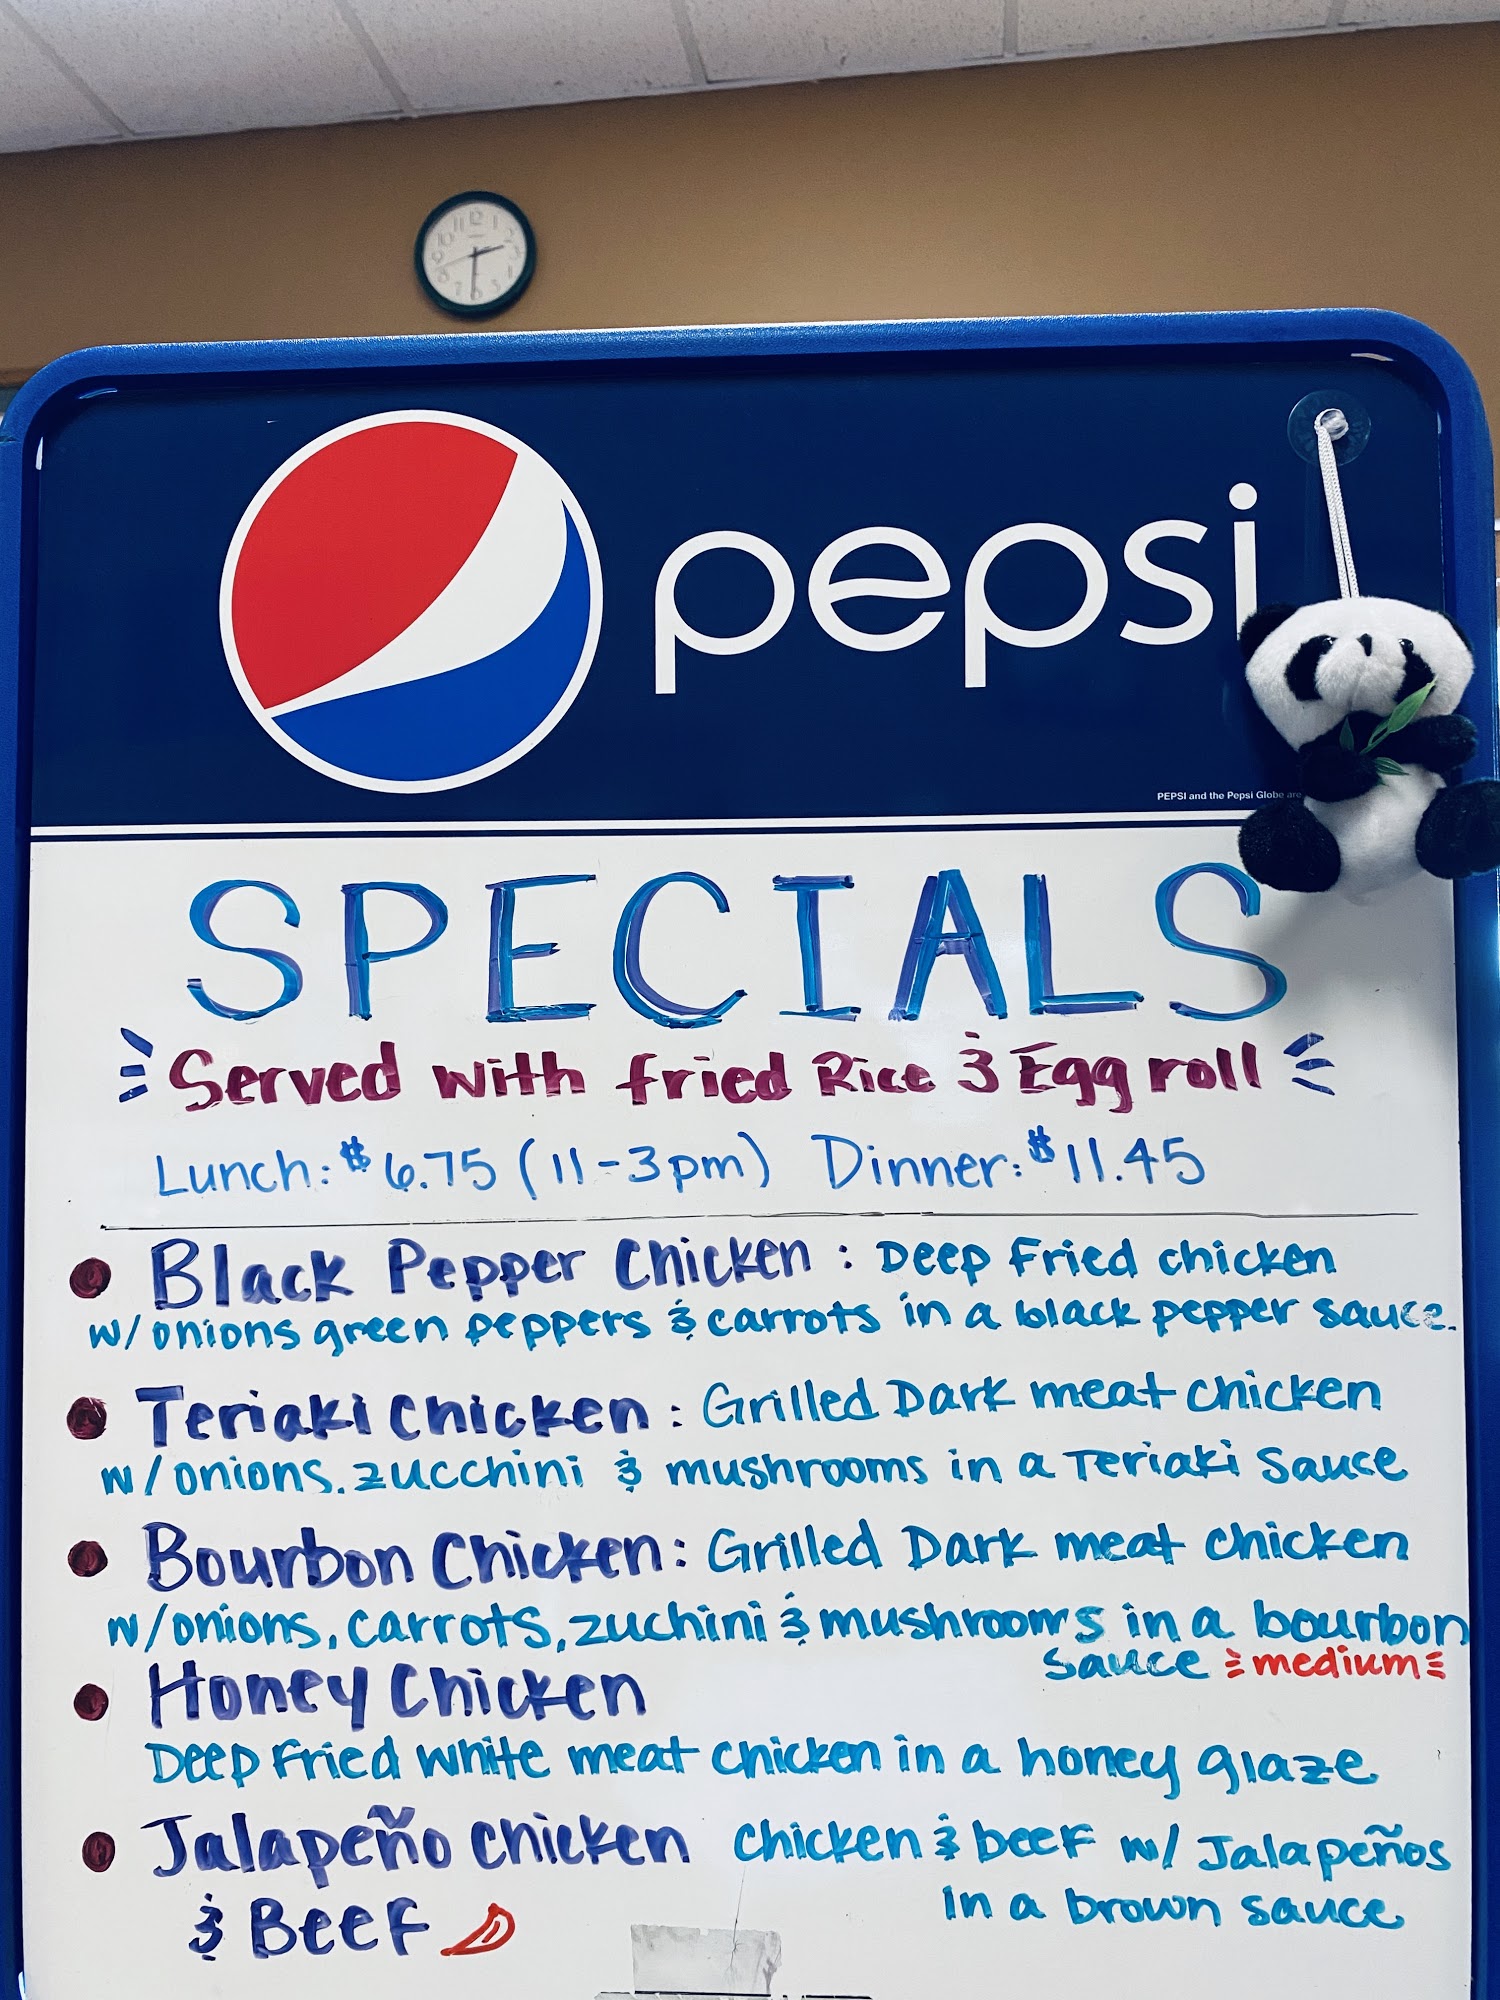 pepsi
PEPSI and the Pepsi Globe are
SPECIALS
Served with fried Rice & Egg roll
Lunch: $6.75 (11-3pm) Dinner: $11.45
• Black Pepper Chicken : Deep Fried chicken
w/onions green peppers & carrots in a black pepper sauce.
• Teriaki Chicken : Grilled Dark meat chicken
w/onions, zucchini & mushrooms in a Teriaki Sauce
• Bourbon Chicken : Grilled Dark meat chicken
w/onions, carrots, zuchini & mushrooms in a bourbon
sauce medium
• Honey Chicken
Deep Fried white meat chicken in a honey glaze
• Jalapeño Chicken chicken & beef w/ Jalapeños
& Beef in a brown sauce